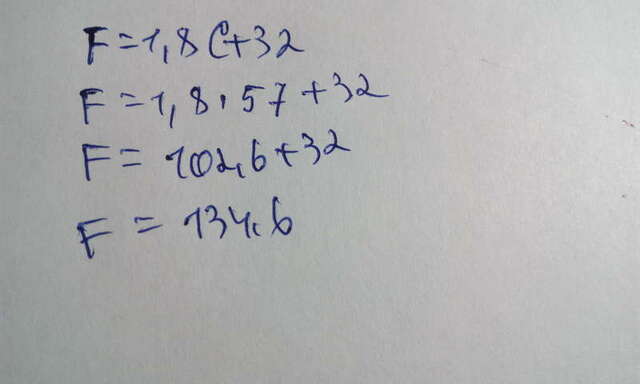 F=1,8C+32
F=1,8·57+32
F=102,6+32
F=134,6